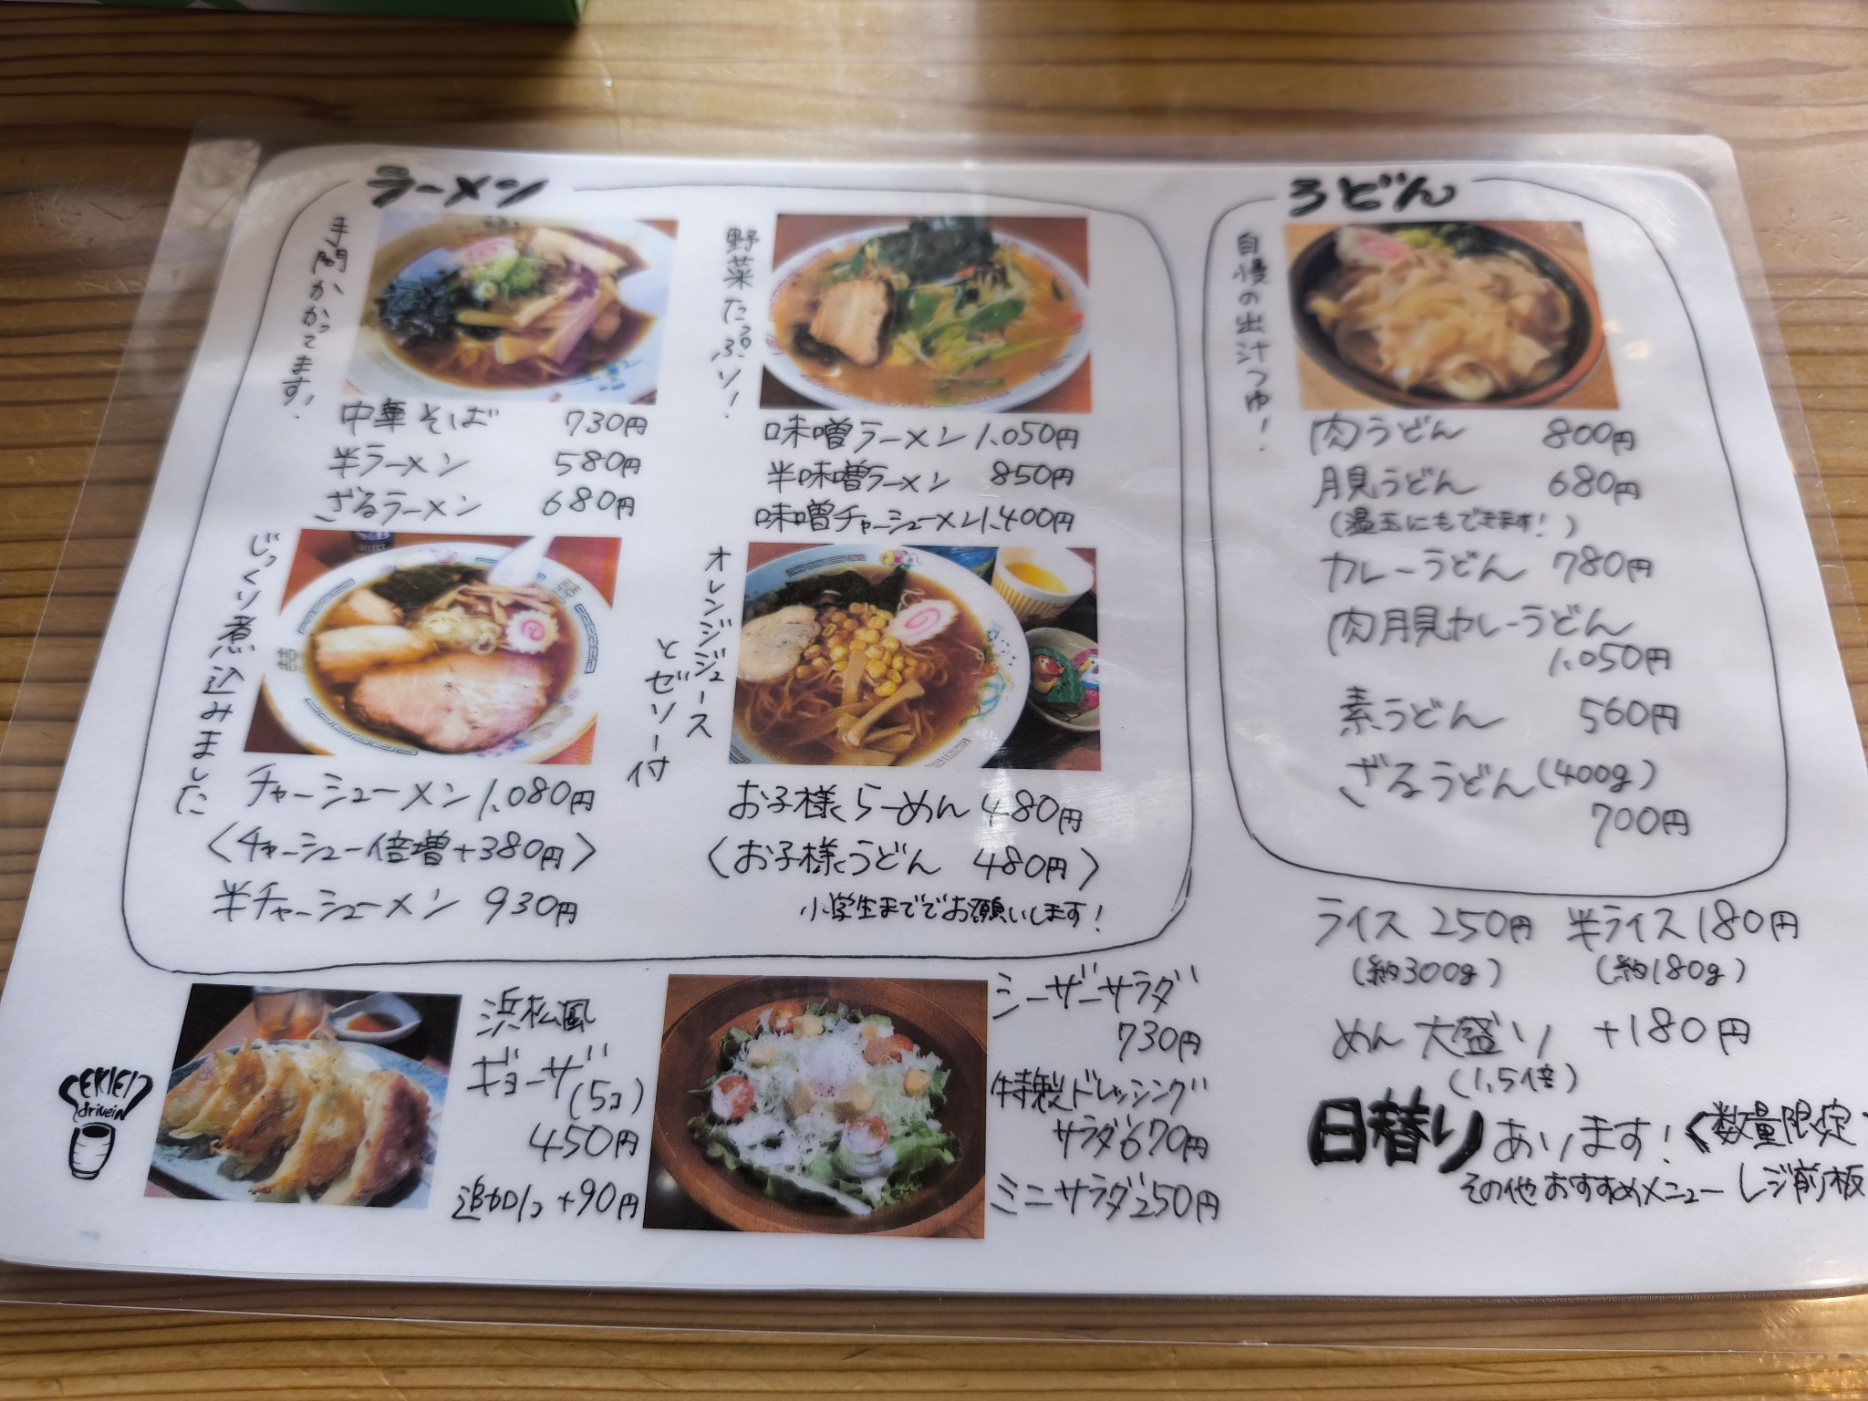 ラーメン
手間かかってます!
中華そば 730円
半ラーメン 580円
ざるラーメン 680円
野菜たっぷり!
味噌ラーメン 1,050円
半味噌ラーメン 850円
味噌チャーシューメン 1,400円
じっくり煮込みました
チャーシューメン 1,080円
〈チャーシュー倍増+380円〉
半チャーシューメン 930円
オレンジジュース
とゼリー付
お子様らーめん 480円
〈お子様うどん 480円〉
小学生まででお願いします!
うどん
自慢の出汁つゆ!
肉うどん 800円
月見うどん 680円
(温玉にもできます!)
カレーうどん 780円
肉月見カレーうどん
1,050円
素うどん 560円
ざるうどん(400g)
700円
ライス 250円 半ライス 180円
(約300g) (約180g)
めん大盛り +180円
(1,5倍)
日替りあります!〈数量限定
その他おすすめメニュー レジ前板
浜松風
ギョーザ
(5コ)
450円
追加1コ +90円
シーザーサラダ
730円
特製ドレッシング
サラダ 670円
ミニサラダ 250円
EKIEI
drivein